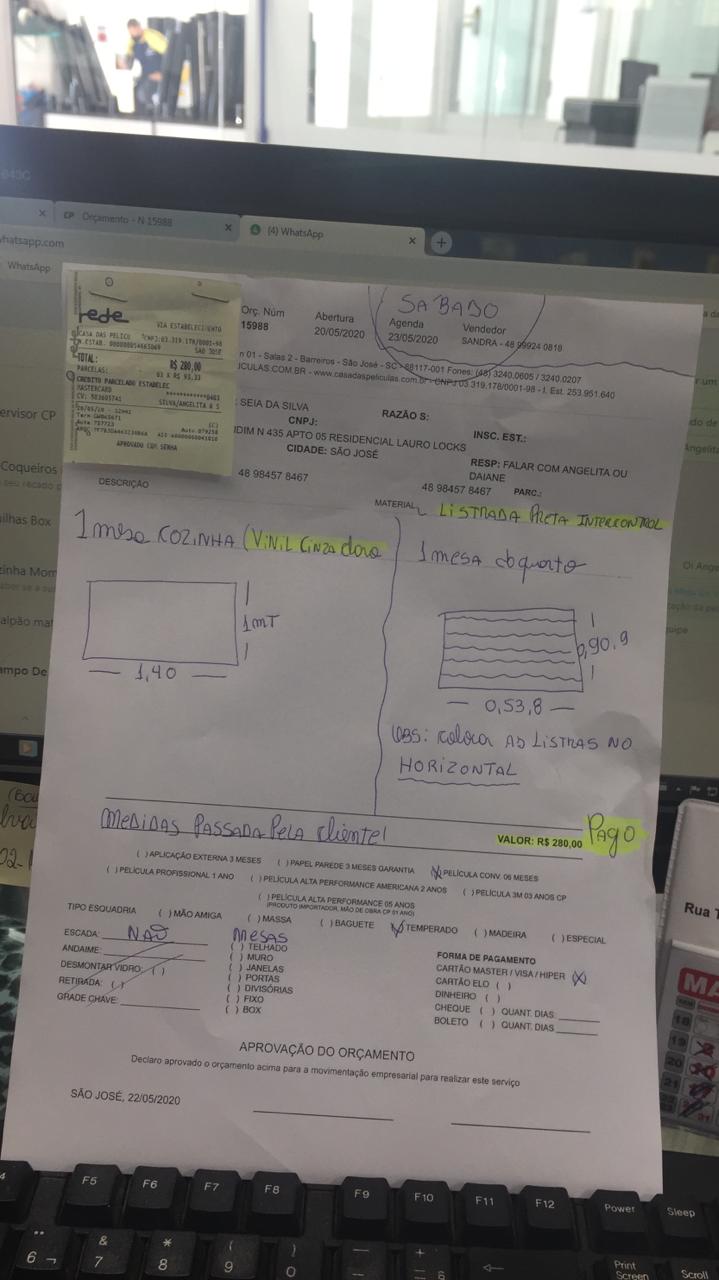 643C
CP Orçamento - N 15988
(4) WhatsApp
hatsapp.com
WhatsApp
rede
VIA ESTABELECIMENTO
CASA DAS PELICU
SAO JOSE
TOTAL: R$ 280,00
PARCELAS: 03 X R$ 93,33
CREDITO PARCELADO ESTABELEC
MASTERCARD
CV: 503605741
SILVA/ANGELITA A S
APROVADO COM SENHA
Orç. Núm Abertura Agenda Vendedor
SABADO
15988 20/05/2020 23/05/2020 SANDRA - 48 99924 0818
n 01 - Salas 2 - Barreiros - São José - SC - 88117-001 Fones: (48) 3240.0605 / 3240.0207
ICULAS.COM.BR - www.casadaspeliculas.com.br - CNPJ 03.319.178/0001-98 - I. Est. 253.951.640
SEIA DA SILVA RAZÃO S:
CNPJ: INSC. EST.:
DIM N 435 APTO 05 RESIDENCIAL LAURO LOCKS
CIDADE: SÃO JOSÉ RESP: FALAR COM ANGELITA OU
DAIANE
48 98457 8467 48 98457 8467 PARC.:
DESCRIÇÃO MATERIAL LISTRADA PRETA INTERCONTROL
1 mesa COZINHA (VINIL CINZA claro
1 MESA do quarto
1 MT
1,40
0,90,9
0,53,8
OBS: colocar AS LISTRAS NO
HORIZONTAL
MEDIDAS PASSADA PELA cliente!
VALOR: R$ 280,00 PAGO
( ) APLICAÇÃO EXTERNA 3 MESES ( ) PAPEL PAREDE 3 MESES GARANTIA (X) PELÍCULA CONV. 06 MESES
( ) PELÍCULA PROFISSIONAL 1 ANO ( ) PELÍCULA ALTA PERFORMANCE AMERICANA 2 ANOS ( ) PELÍCULA 3M 03 ANOS CP
( ) PELÍCULA ALTA PERFORMANCE 05 ANOS
(PRODUTO IMPORTADOR, MÃO DE OBRA CP 01 ANO)
TIPO ESQUADRIA ( ) MÃO AMIGA ( ) MASSA ( ) BAGUETE (X) TEMPERADO ( ) MADEIRA ( ) ESPECIAL
ESCADA: NAO
ANDAIME:
DESMONTAR VIDRO: ( )
RETIRADA: ( )
GRADE CHAVE:
MESAS
( ) TELHADO
( ) MURO
( ) JANELAS
( ) PORTAS
( ) DIVISÓRIAS
( ) FIXO
( ) BOX
FORMA DE PAGAMENTO
CARTÃO MASTER / VISA / HIPER (X)
CARTÃO ELO ( )
DINHEIRO ( )
CHEQUE ( ) QUANT. DIAS:
BOLETO ( ) QUANT. DIAS
APROVAÇÃO DO ORÇAMENTO
Declaro aprovado o orçamento acima para a movimentação empresarial para realizar este serviço
SÃO JOSÉ, 22/05/2020
ervisor CP
Coqueiros
ilhas Box
zinha Mom
alpão mat
ampo De
Oi Ange
Rua T
MA
18
19
20
21
F5 F6 F7 F8 F9 F10 F11 F12 Power Sleep
6 & 7 * 8 ( 9 ) 0
Print
Screen
Scroll